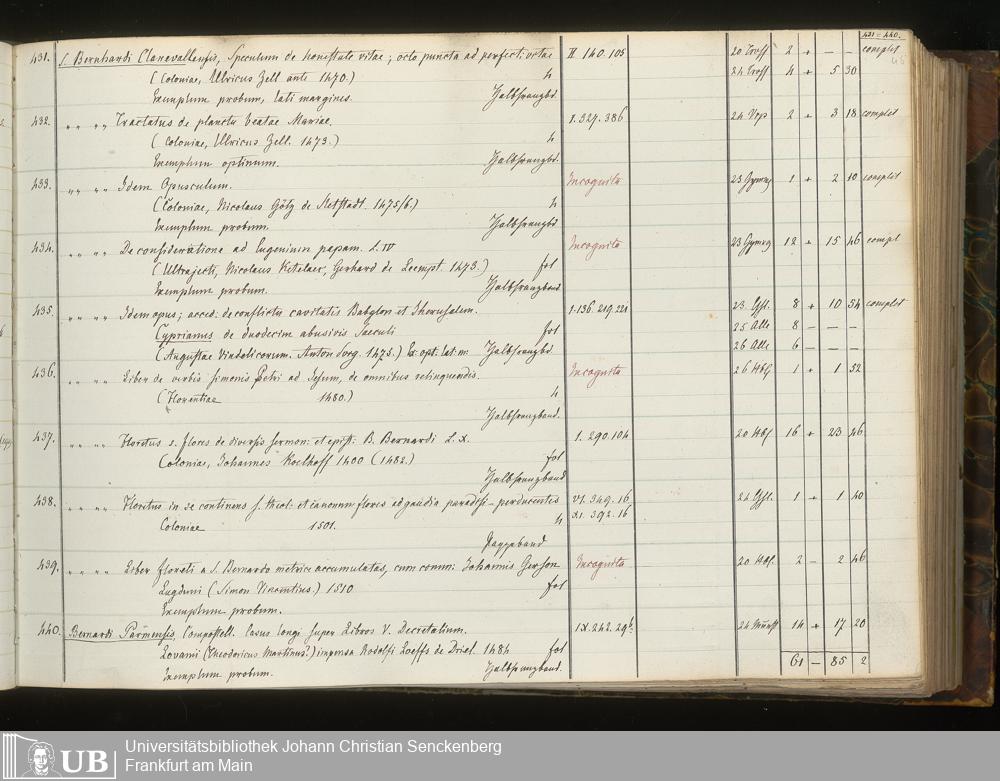 431–440.
431. S. Bernhardi Claravallensis, Speculum de honestate vitae; octo puncta ad perfect: vitae II 140. 105 20 Tross 2 + – – complet
(Coloniae, Ulricus Zell ante 1470.) 4 24 Tross 4 + 5 30
Exemplum probum, lati margines. Halbfranzbd.
432. " " " " Tractatus de planctu beatae Mariae. 1. 327. 386 24 2 + 3 18 complet
(Coloniae, Ulricus Zell. 1473.) 4
Exemplum optimum. Halbfranzbd.
433. " " " " Idem Opusculum. Incognita 23 1 + 2 10 complet
(Coloniae, Nicolaus Götz de Sletstadt. 1475/6.) 4
Exemplum probum. Halbfranzbd
434. " " " " De consideratione ad Eugenium papam. L. IV Incognita 23 12 + 15 46 compl
(Ultrajecti, Nicolaus Ketelaer, Gerhard de Leempt. 1473.) fol
Exemplum probum. Halbfranzband
435. " " " " Idem opus; acced: de conflictu civitatis Babylon et Iherusalem. 1. 136. 219. 221 23 8 + 10 54 complet
Cyprianus de duodecim abusivis saeculi fol 25 Alle 8 – – –
(Augustae Vindelicorum. Anton Sorg. 1475.) Ex. opt. lat. m. Halbfranzbd. 26 Alle 6 – – –
436. " " " " Liber de verbis Simonis Petri ad Jesum, de omnibus relinquendis. Incognita 26 1 + 1 52
(Florentiae 1480.) 4
Halbfranzband.
437. " " " " Floretus s. flores de diversis sermon: et epist: B. Bernardi L. X. 1. 290. 104 20 16 + 23 46
Coloniae, Johannes Koelhoff 1400 (1482.) fol
Halbfranzband
438. " " " " Floretus in se continens s. theol: et canonum flores ad gaudia paradisi perducentes VI. 349. 16 24 1 + 1 40
Coloniae 1501. 4 XI. 392. 16
Pappeband
439. " " " " Liber floreti a S. Bernardo metrice accumulatas, cum comm: Johannis Gerson Incognita 20 2 – 2 46
Lugduni (Simon Vincentius.) 1510 fol
Exemplum probum.
440. Bernardi Parmensis, Compostell. Casus longi super Libros V. Decretalium. IX. 242. 29b 24 14 + 17 20
Lovanii (Theodoricus Martinus?) impensa Rodolfi Loeffs de Driel. 1484 fol
Exemplum probum. Halbfranzband. 61 – 85 2
UB
Universitätsbibliothek Johann Christian Senckenberg
Frankfurt am Main